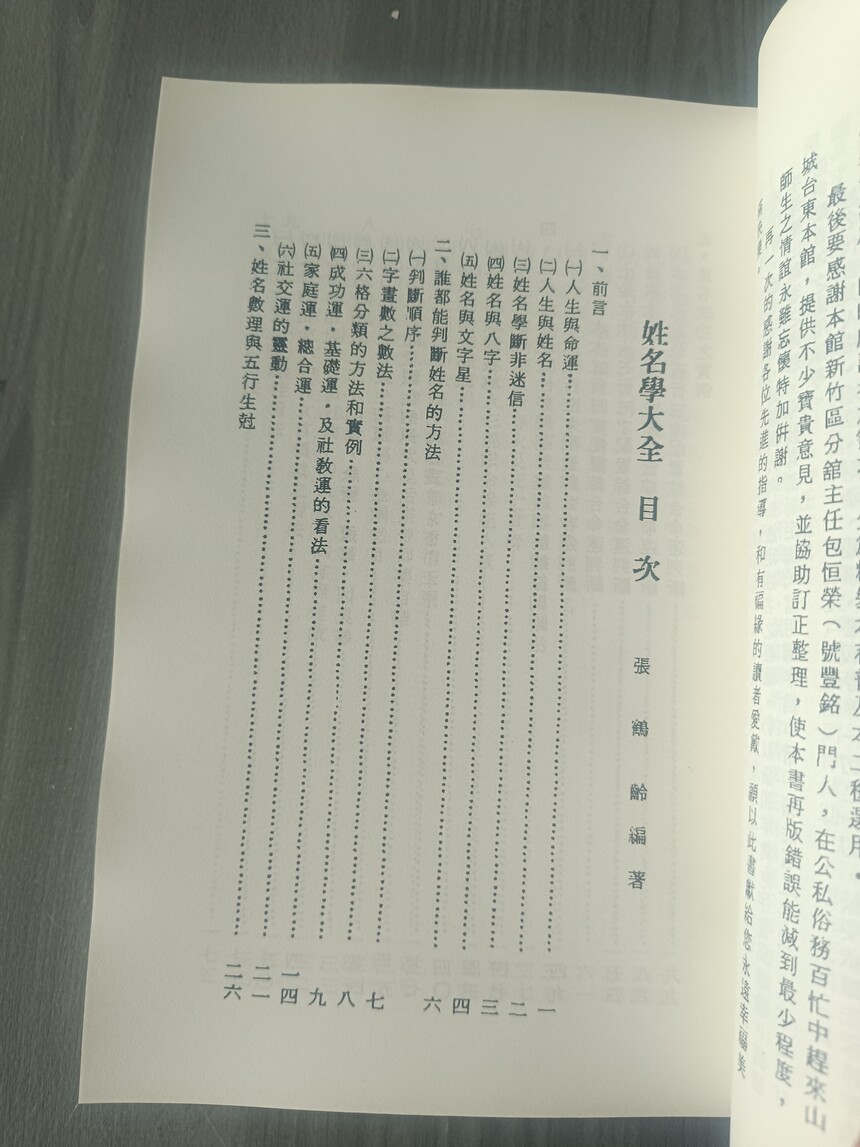 最後要感謝本館新竹區分舘主任包恒榮（號豐銘）門人，在公私俗務百忙中趕來山
城台東本館，提供不少寶貴意見，並協助訂正整理，使本書再版錯誤能減到最少程度，
師生之情誼永難忘懷特加併謝。
再一次的感謝各位先進的指導，和有福緣的讀者愛，願以此書獻給您永遠幸福美
姓名學大全 目次
張鶴齡編著
一、前言
㈠人生與命運……一
㈡人生與姓名……二
㈢姓名學斷非迷信……三
㈣姓名與八字……四
㈤姓名與文字星……六
二、誰都能判斷姓名的方法
㈠判斷順序……七
㈡字畫數之數法……八
㈢六格分類的方法和實例……九
㈣成功運・基礎運・及社教運的看法……一四
㈤家庭運・總合運……二一
㈥社交運的靈動……二六
三、姓名數理與五行生尅